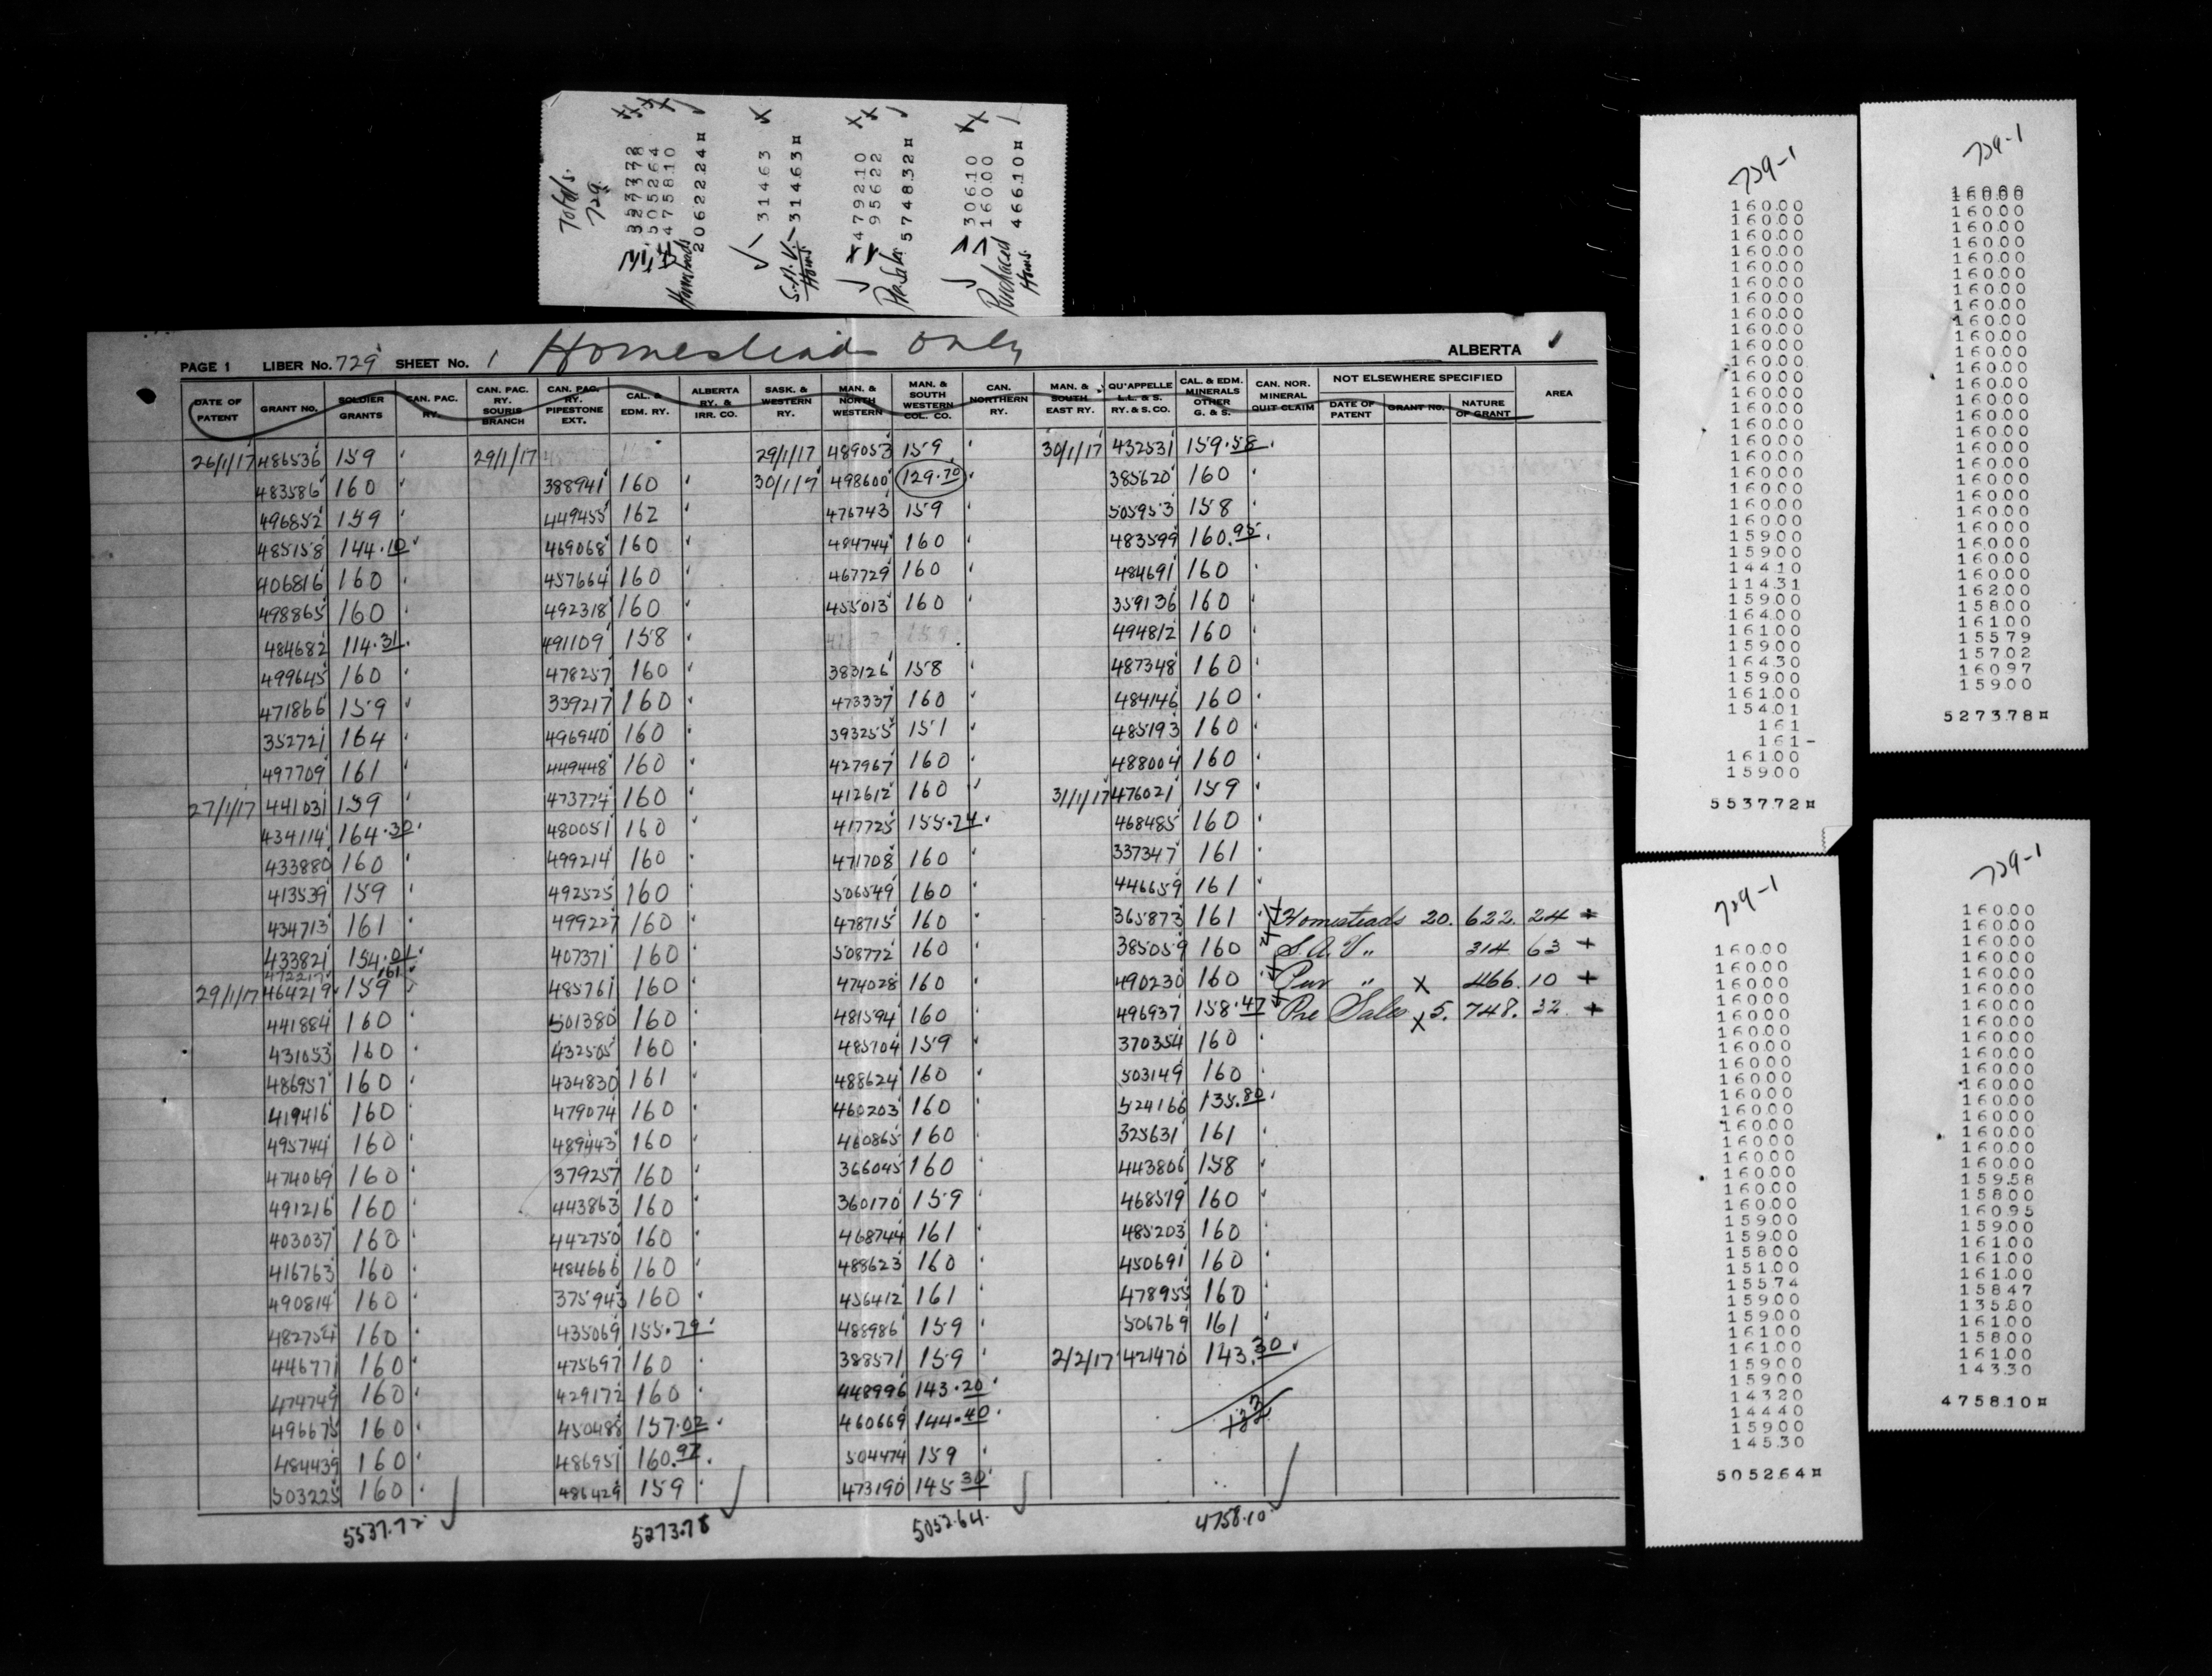 Totals.
729.
5537.72
5273.78
5052.64
4758.10
Homesteads 20622.24¤
314.63
S.A.V. Homs. 314.63¤
4792.10
956.22
Pre Sales 5748.32¤
306.10
160.00
Purchased Homs. 466.10¤
PAGE 1 LIBER No. 729 SHEET No. 1 Homesteads only ALBERTA 1
DATE OF PATENT GRANT NO. SOLDIER GRANTS CAN. PAC. RY. CAN. PAC. RY. SOURIS BRANCH CAN. PAC. RY. PIPESTONE EXT. CAL. & EDM. RY. ALBERTA RY. & IRR. CO. SASK. & WESTERN RY. MAN. & NORTH WESTERN MAN. & SOUTH WESTERN COL. CO. CAN. NORTHERN RY. MAN. & SOUTH EAST RY. QU'APPELLE L.L. & S. RY. & S. CO. CAL. & EDM. MINERALS OTHER G. & S. CAN. NOR. MINERAL QUIT CLAIM NOT ELSEWHERE SPECIFIED DATE OF PATENT GRANT NO. NATURE OF GRANT AREA
26/1/17 486536 159 29/1/17 29/1/17 489053 159 30/1/17 432531 159.58
483586 160 388941 160 30/1/17 498600 129.70 385620 160
496852 159 449455 162 476743 159 505953 158
485158 144.10 469068 160 484744 160 483599 160.95
406816 160 457664 160 467729 160 484691 160
498865 160 492318 160 455013 160 359136 160
484682 114.31 491109 158 159 494812 160
499645 160 478257 160 383126 158 487348 160
471866 159 339217 160 473337 160 484146 160
352721 164 496940 160 393255 151 485193 160
497709 161 449448 160 427967 160 488004 160
27/1/17 441031 159 473774 160 412612 160 31/1/17 476021 159
434114 164.30 480051 160 417725 155.74 468485 160
433880 160 499214 160 471708 160 337347 161
413539 159 492525 160 506549 160 446659 161
434713 161 499227 160 478715 160 365873 161 Homesteads 20. 622. 24 +
433821 154.01 407371 160 508772 160 385059 160 S.A.V „ 314 63 +
472217 161
29/1/17 464219 159 485761 160 474028 160 490230 160 Pur „ x 466. 10 +
441884 160 501380 160 481594 160 496937 158.47 Pre Sales x 5. 748. 32 +
431053 160 432505 160 485704 159 370354 160
486957 160 434830 161 488624 160 503149 160
419416 160 479074 160 460203 160 524166 135.80
495744 160 489443 160 460865 160 325631 161
474069 160 379257 160 366045 160 443806 158
491216 160 443863 160 360170 159 468519 160
403037 160 442750 160 468744 161 485203 160
416763 160 484666 160 488623 160 450691 160
490814 160 375943 160 456412 161 478955 160
482754 160 435069 155.79 488986 159 506769 161
446771 160 475697 160 388571 159 2/2/17 421470 143.30
474749 160 429172 160 448996 143.20
496675 160 450488 157.02 460669 144.40
484439 160 486951 160.97 504474 159
503225 160 486429 159 473190 145.30
5537.72 5273.78 5052.64 4758.10
729-1
160.00
160.00
160.00
160.00
160.00
160.00
160.00
160.00
160.00
160.00
160.00
160.00
160.00
160.00
160.00
160.00
160.00
160.00
160.00
160.00
160.00
159.00
159.00
144.10
114.31
159.00
164.00
161.00
159.00
164.30
159.00
161.00
154.01
1.61
1.61-
161.00
159.00
5537.72¤
729-1
160.00
160.00
160.00
160.00
160.00
160.00
160.00
160.00
160.00
160.00
160.00
160.00
160.00
160.00
160.00
160.00
160.00
160.00
160.00
160.00
160.00
160.00
160.00
160.00
160.00
162.00
158.00
161.00
155.79
157.02
160.97
159.00
5273.78¤
729-1
160.00
160.00
160.00
160.00
160.00
160.00
160.00
160.00
160.00
160.00
160.00
160.00
160.00
160.00
160.00
160.00
160.00
159.00
159.00
158.00
151.00
155.74
159.00
159.00
161.00
161.00
159.00
159.00
143.20
144.40
159.00
145.30
5052.64¤
729-1
160.00
160.00
160.00
160.00
160.00
160.00
160.00
160.00
160.00
160.00
160.00
160.00
160.00
160.00
160.00
160.00
160.00
159.58
158.00
160.95
159.00
161.00
161.00
161.00
158.47
135.80
161.00
158.00
161.00
143.30
4758.10¤